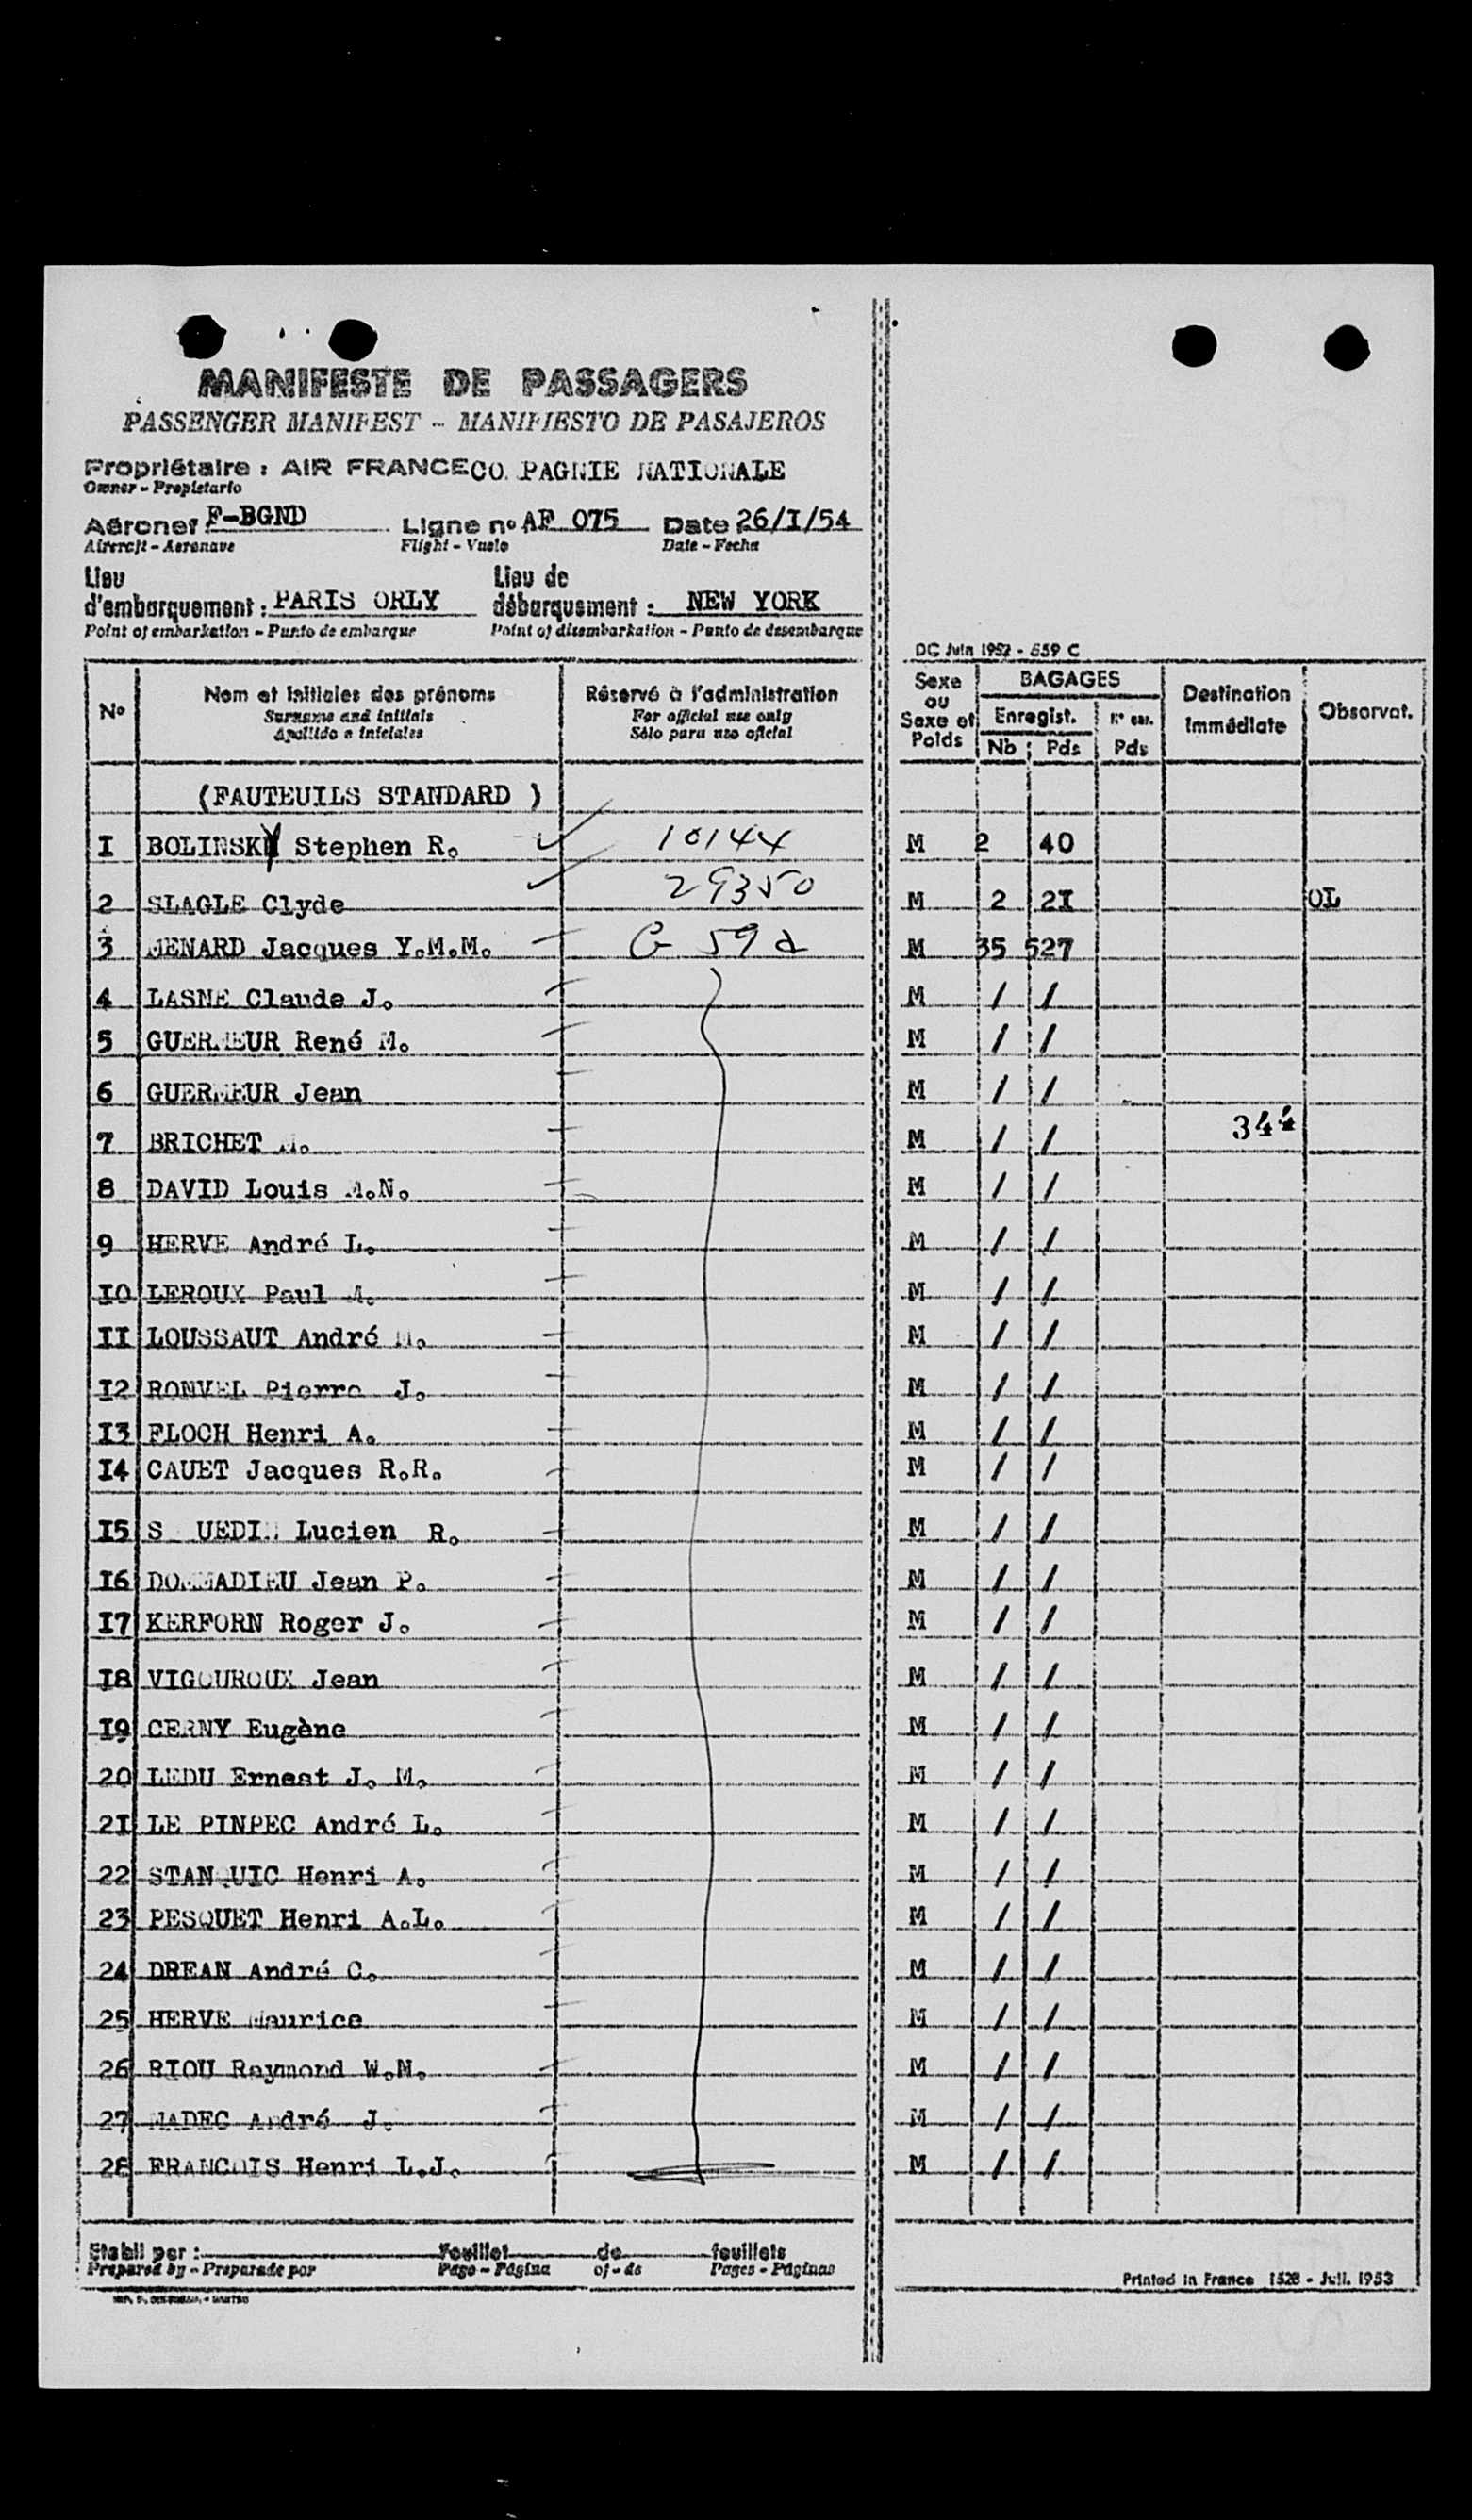 MANIFESTE DE PASSAGERS
PASSENGER MANIFEST - MANIFIESTO DE PASAJEROS
Propriétaire : AIR FRANCE CO PAGNIE NATIONALE
Owner - Propietario
Aéronef F-BGND Ligne n° AF 075 Date 26/I/54
Aircraft - Aeronave Flight - Vuelo Date - Fecha
Lieu d'embarquement : PARIS ORLY Lieu de débarquement : NEW YORK
Point of embarkation - Punto de embarque Point of disembarkation - Punto de desembarque
DC Juin 1952 - 559 C
N° Nom et initiales des prénoms Réservé à l'administration Sexe ou Sexe et Poids BAGAGES Destination immédiate Observat.
Surname and initials For official use only Enregist. N° enr.
Apellido e iniciales Sólo para uso oficial Nb Pds Pds
(FAUTEUILS STANDARD )
I BOLINSKY Stephen R. 10144 M 2 40
2 SLAGLE Clyde 29350 M 2 2I OL
3 MENARD Jacques Y.M.M. G 59 M 35 527
4 LASNE Claude J. M / /
5 GUERMEUR René M. M / /
6 GUERMEUR Jean M / /
7 BRICHET M. M / / 344
8 DAVID Louis M.N. M / /
9 HERVE André L. M / /
I0 LEROUX Paul M. M / /
II LOUSSAUT André M. M / /
I2 RONVEL Pierre J. M / /
I3 FLOCH Henri A. M / /
I4 CAUET Jacques R.R. M / /
I5 Lucien R. M / /
I6 DOMMADIEU Jean P. M / /
I7 KERFORN Roger J. M / /
I8 VIGOUROUX Jean M / /
I9 CERNY Eugène M / /
20 LEDU Ernest J. M. M / /
2I LE PINPEC André L. M / /
22 STANQUIC Henri A. M / /
23 PESQUET Henri A.L. M / /
24 DREAN André C. M / /
25 HERVE Maurice M / /
26 RIOU Raymond W.N. M / /
27 MADEC André J. M / /
28 FRANCOIS Henri L.J. M / /
Etabli par : Feuillet de feuillets
Prepared by - Preparado por Page - Página of - de Pages - Páginas
Printed in France 1528 - Juil. 1953